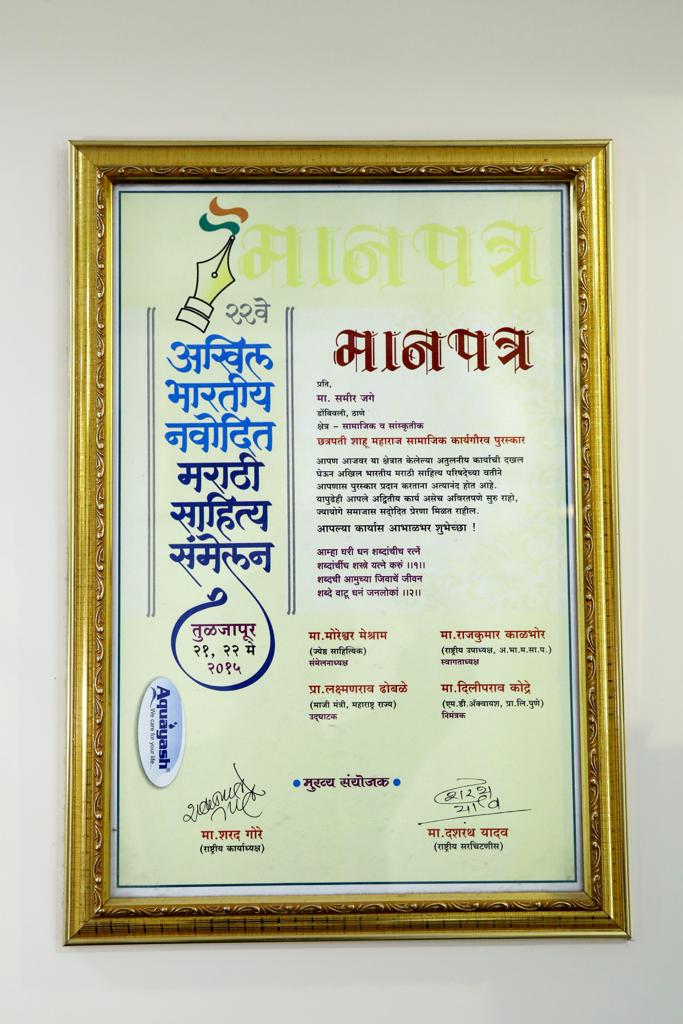 मानपत्र
२२वे
अखिल
भारतीय
नवोदित
मराठी
साहित्य
संमेलन
तुळजापूर
२१, २२ मे
२०१५
Aquayash
We care for your life...
मानपत्र
प्रति,
मा. समीर जगे
डोंबिवली, ठाणे
क्षेत्र - सामाजिक व सांस्कृतीक
छत्रपती शाहू महाराज सामाजिक कार्यगौरव पुरस्कार
आपण आजवर या क्षेत्रात केलेल्या अतुलनीय कार्याची दखल
घेऊन अखिल भारतीय मराठी साहित्य परिषदेच्या वतीने
आपणास पुरस्कार प्रदान करताना अत्यानंद होत आहे.
यापुढेही आपले अद्वितीय कार्य असेच अविरतपणे सुरु राहो,
ज्यायोगे समाजास सदोदित प्रेरणा मिळत राहील.
आपल्या कार्यास आभाळभर शुभेच्छा !
आम्हा घरी धन शब्दांचीच रत्नें
शब्दांचींच शस्त्रे यत्ने करुं ॥१॥
शब्दची आमुच्या जिवाचें जीवन
शब्दे वाटू धनं जनलोकां ॥२॥
मा.मोरेश्वर मेश्राम
(ज्येष्ठ साहित्यिक)
संमेलनाध्यक्ष
मा.राजकुमार काळभोर
(राष्ट्रीय उपाध्यक्ष, अ.भा.म.सा.प.)
स्वागताध्यक्ष
प्रा.लक्ष्मणराव ढोबळे
(माजी मंत्री, महाराष्ट्र राज्य)
उद्घाटक
मा.दिलीपराव कोद्रे
(एम.डी.ॲक्वायश, प्रा.लि.पुणे)
निमंत्रक
मुख्य संयोजक
मा.शरद गोरे
(राष्ट्रीय कार्याध्यक्ष)
मा.दशरथ यादव
(राष्ट्रीय सरचिटणीस)